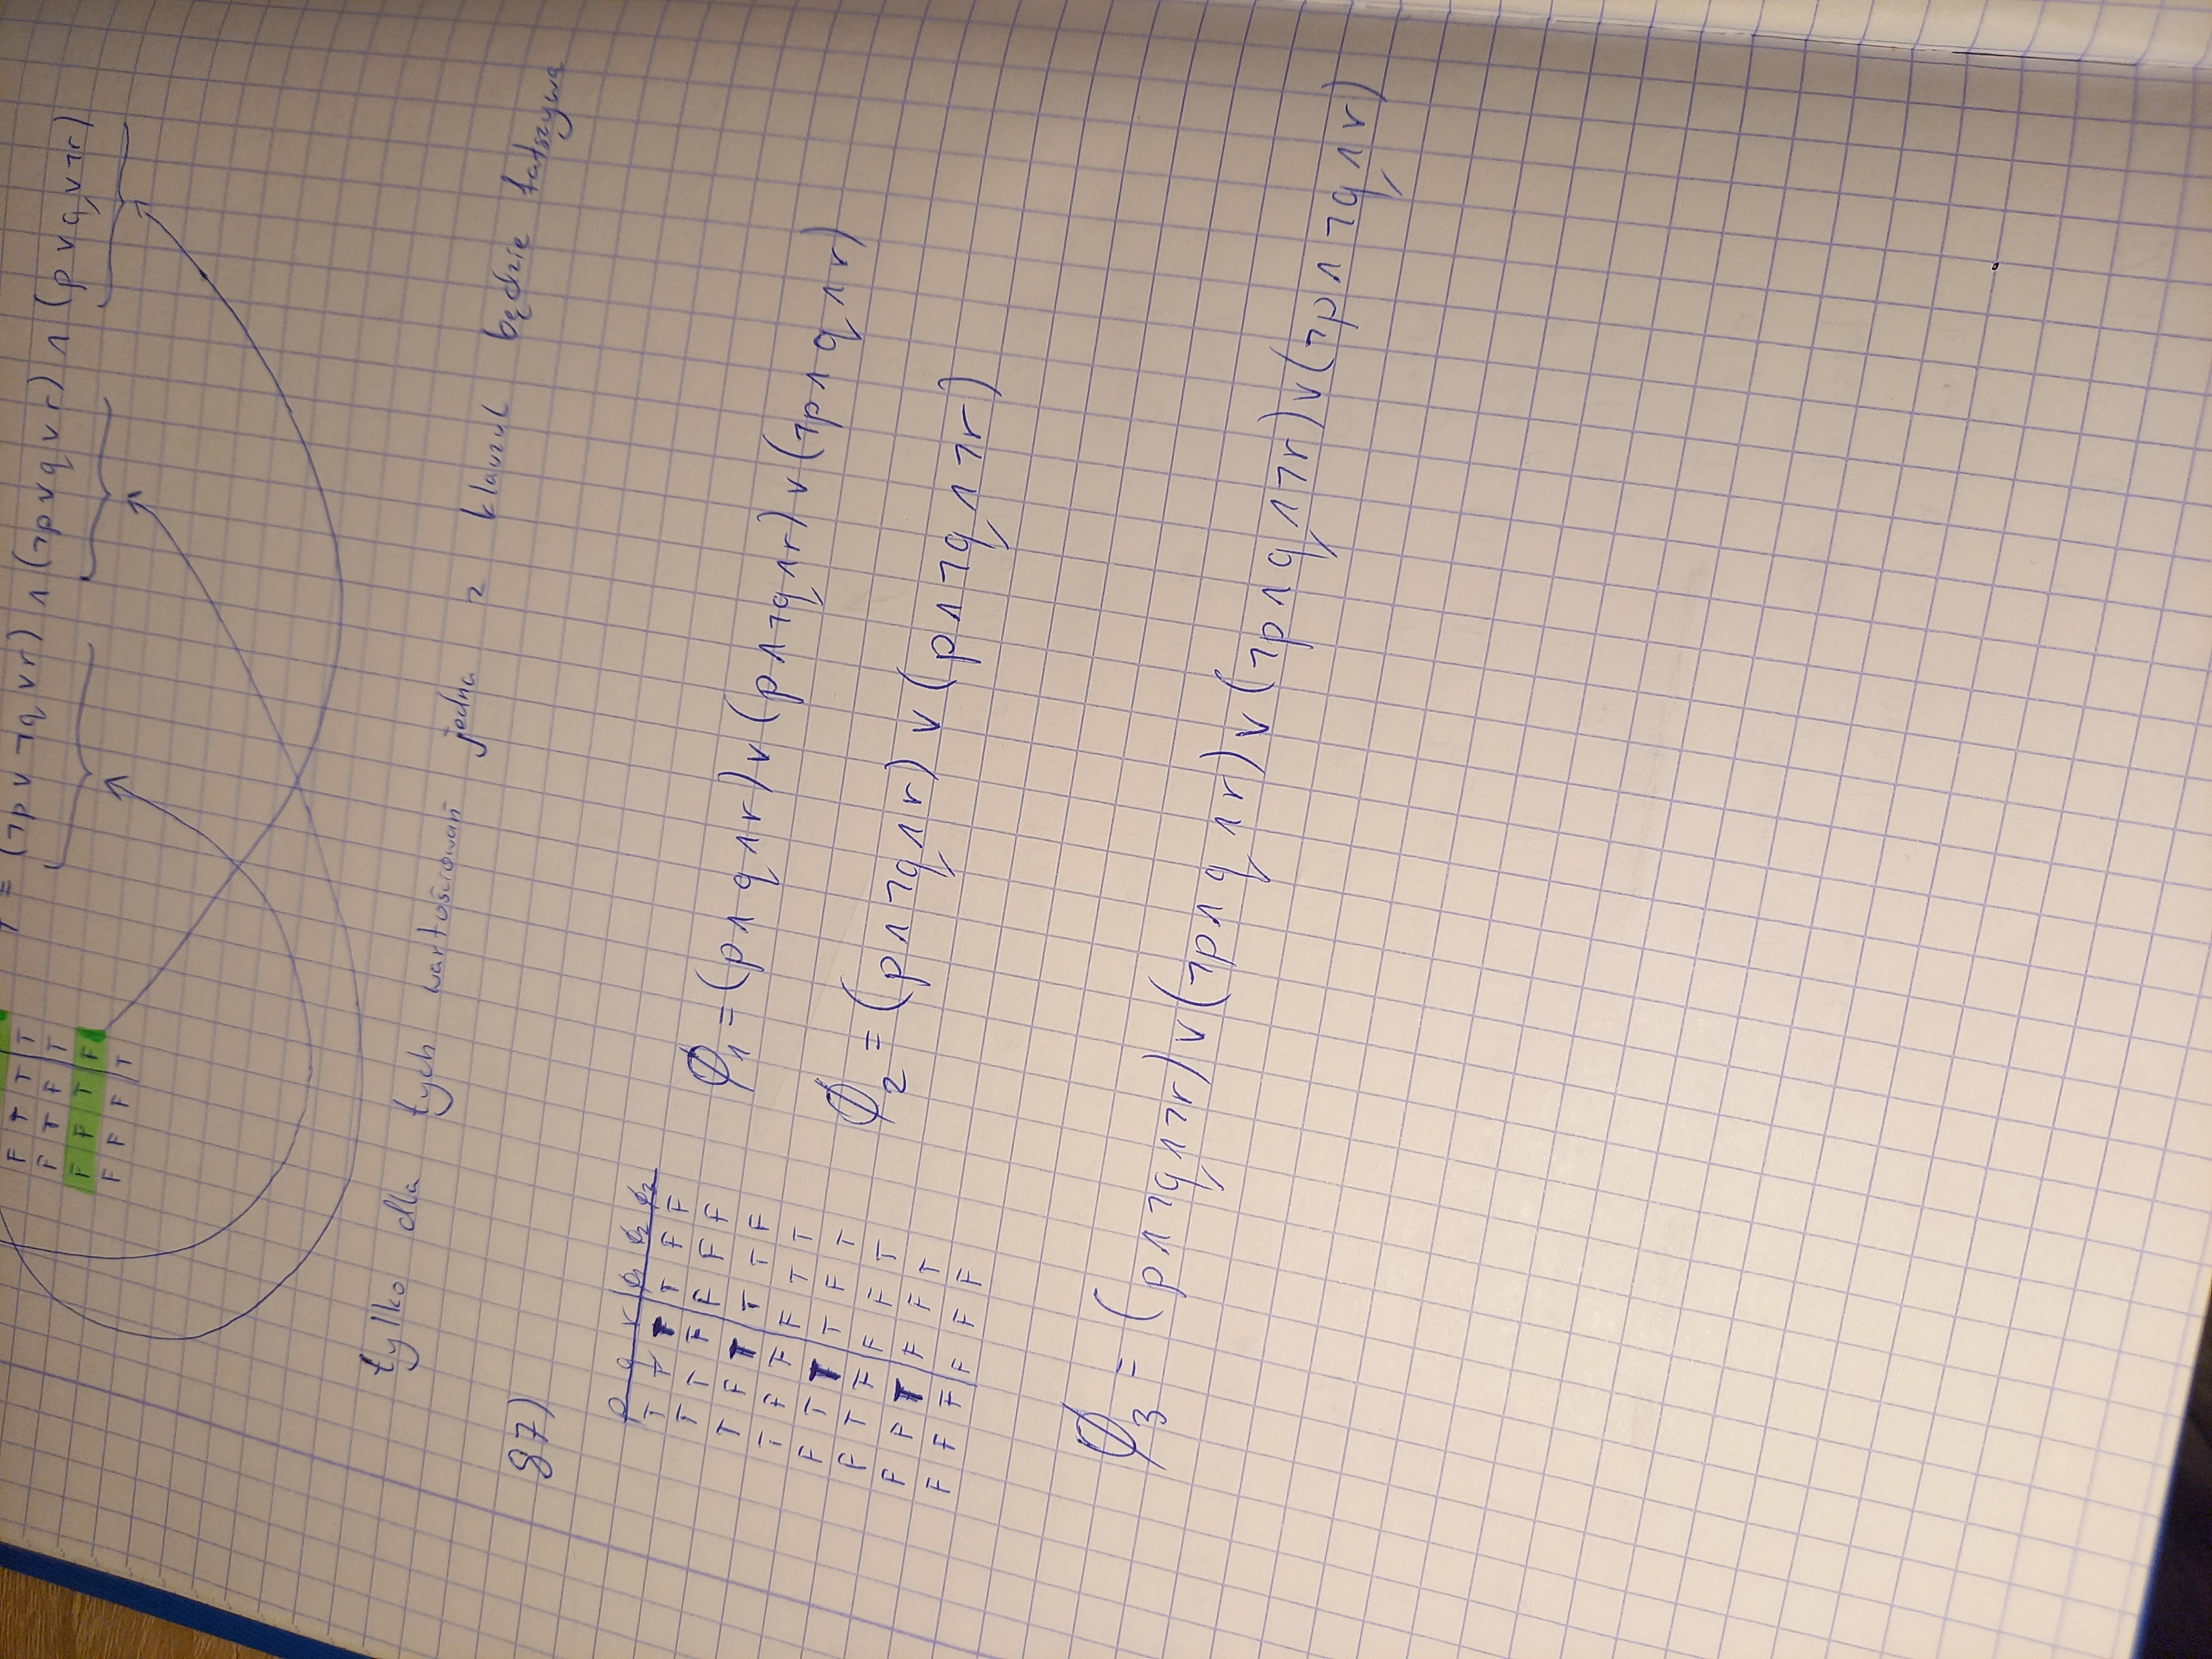 F T T T
F T F T
F F T F
F F F T
= (¬p ∨ ¬q ∨ r) ∧ (¬p ∨ q ∨ r) ∧ (p ∨ q ∨ ¬r)
tylko dla tych wartościowań jedna z klauzul będzie fałszywa
87)
p q r ϕ₁ ϕ₂ ϕ₃
T T T T F F
T T F F F F
T F T T T F
T F F F T T
F T T T F T
F T F F F T
F F T F F T
F F F F F F
ϕ₁ = (p ∧ q ∧ r) ∨ (p ∧ ¬q ∧ r) ∨ (¬p ∧ q ∧ r)
ϕ₂ = (p ∧ ¬q ∧ r) ∨ (p ∧ ¬q ∧ ¬r)
ϕ₃ = (p ∧ ¬q ∧ ¬r) ∨ (¬p ∧ q ∧ r) ∨ (¬p ∧ q ∧ ¬r) ∨ (¬p ∧ ¬q ∧ r)